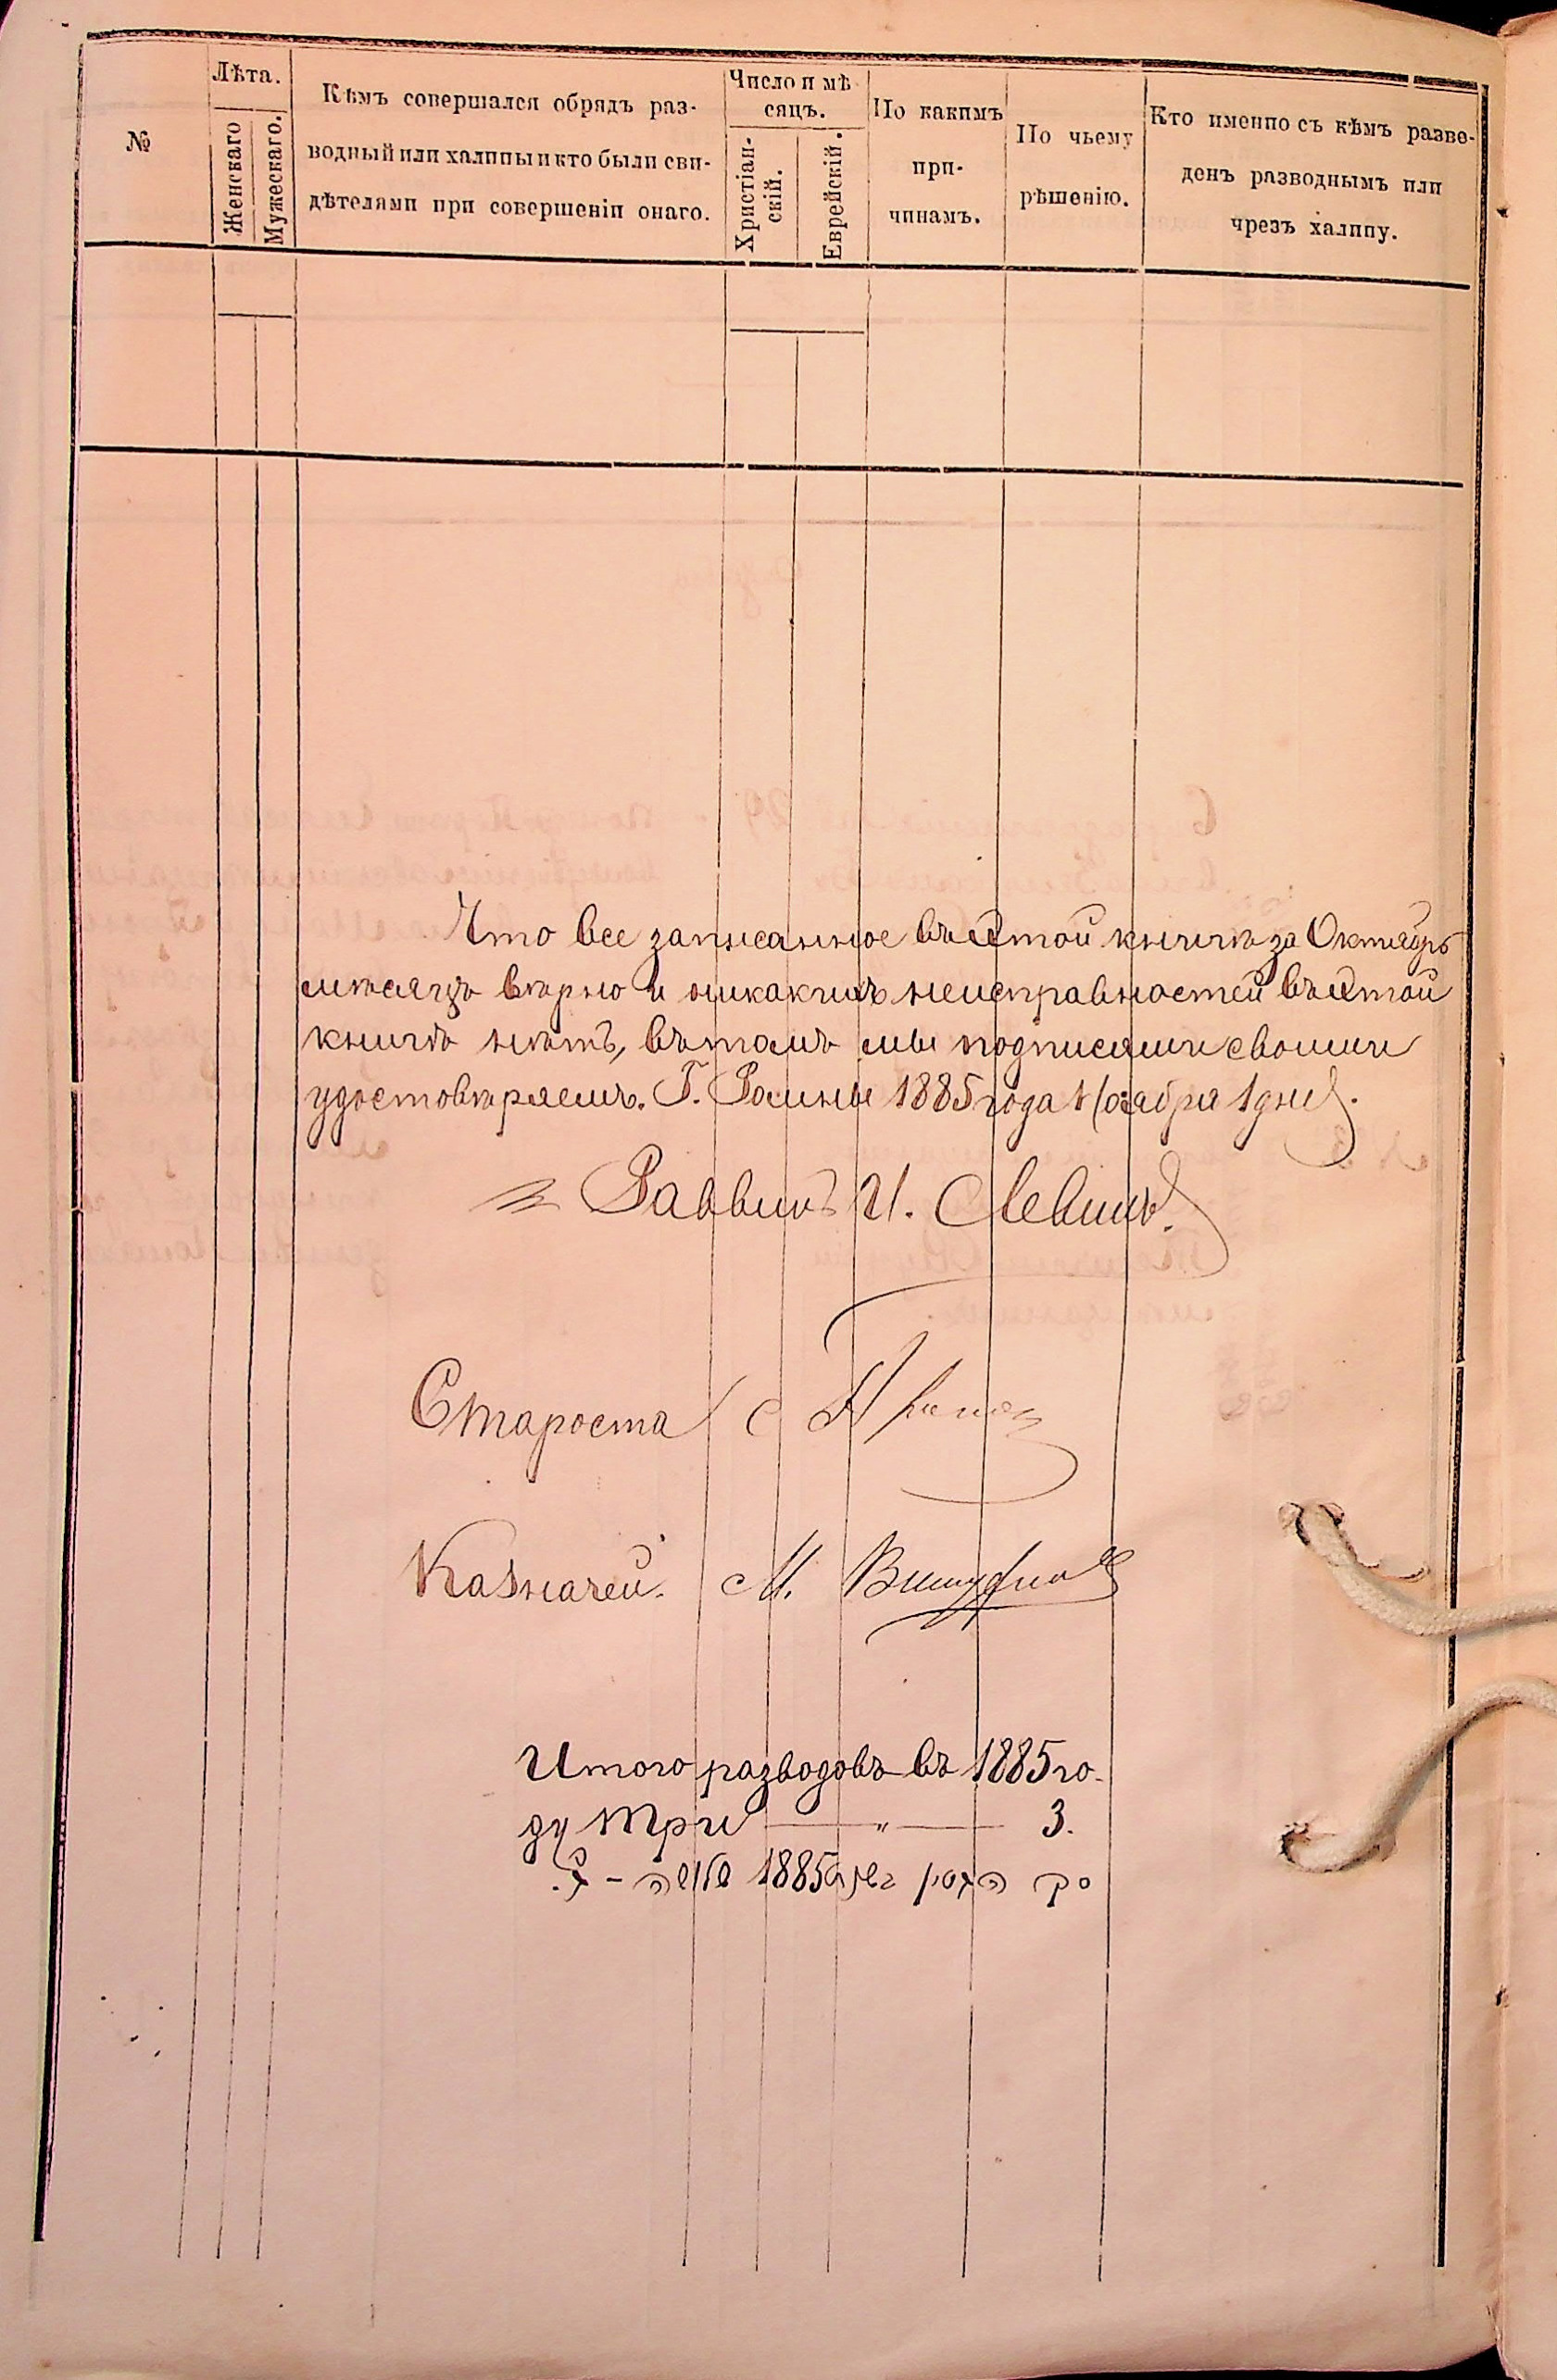 №
Лѣта.
Женскаго
Мужескаго.
Кѣмъ совершался обрядъ раз-
водный или халиппы и кто были сви-
дѣтелями при совершеніи онаго.
Число и мѣ-
сяцъ.
Христіан-
скій.
Еврейскій.
По какимъ
при-
чинамъ.
По чьему
рѣшенію.
Кто именно съ кѣмъ разве-
денъ разводнымъ или
чрезъ халиппу.
Что все записанное въ этой книгѣ за Октябрь
мѣсяцъ вѣрно и никакихъ неисправностей въ этой
книгѣ нѣтъ, въ томъ мы подписями своими
удостовѣряемъ. Г. Ромны 1885 года Ноября 1 дня.
Раввинъ И. Левинъ.
Староста
Казначей. М.
Итого разводовъ въ 1885 го-
ду три — „ — 3.
1885